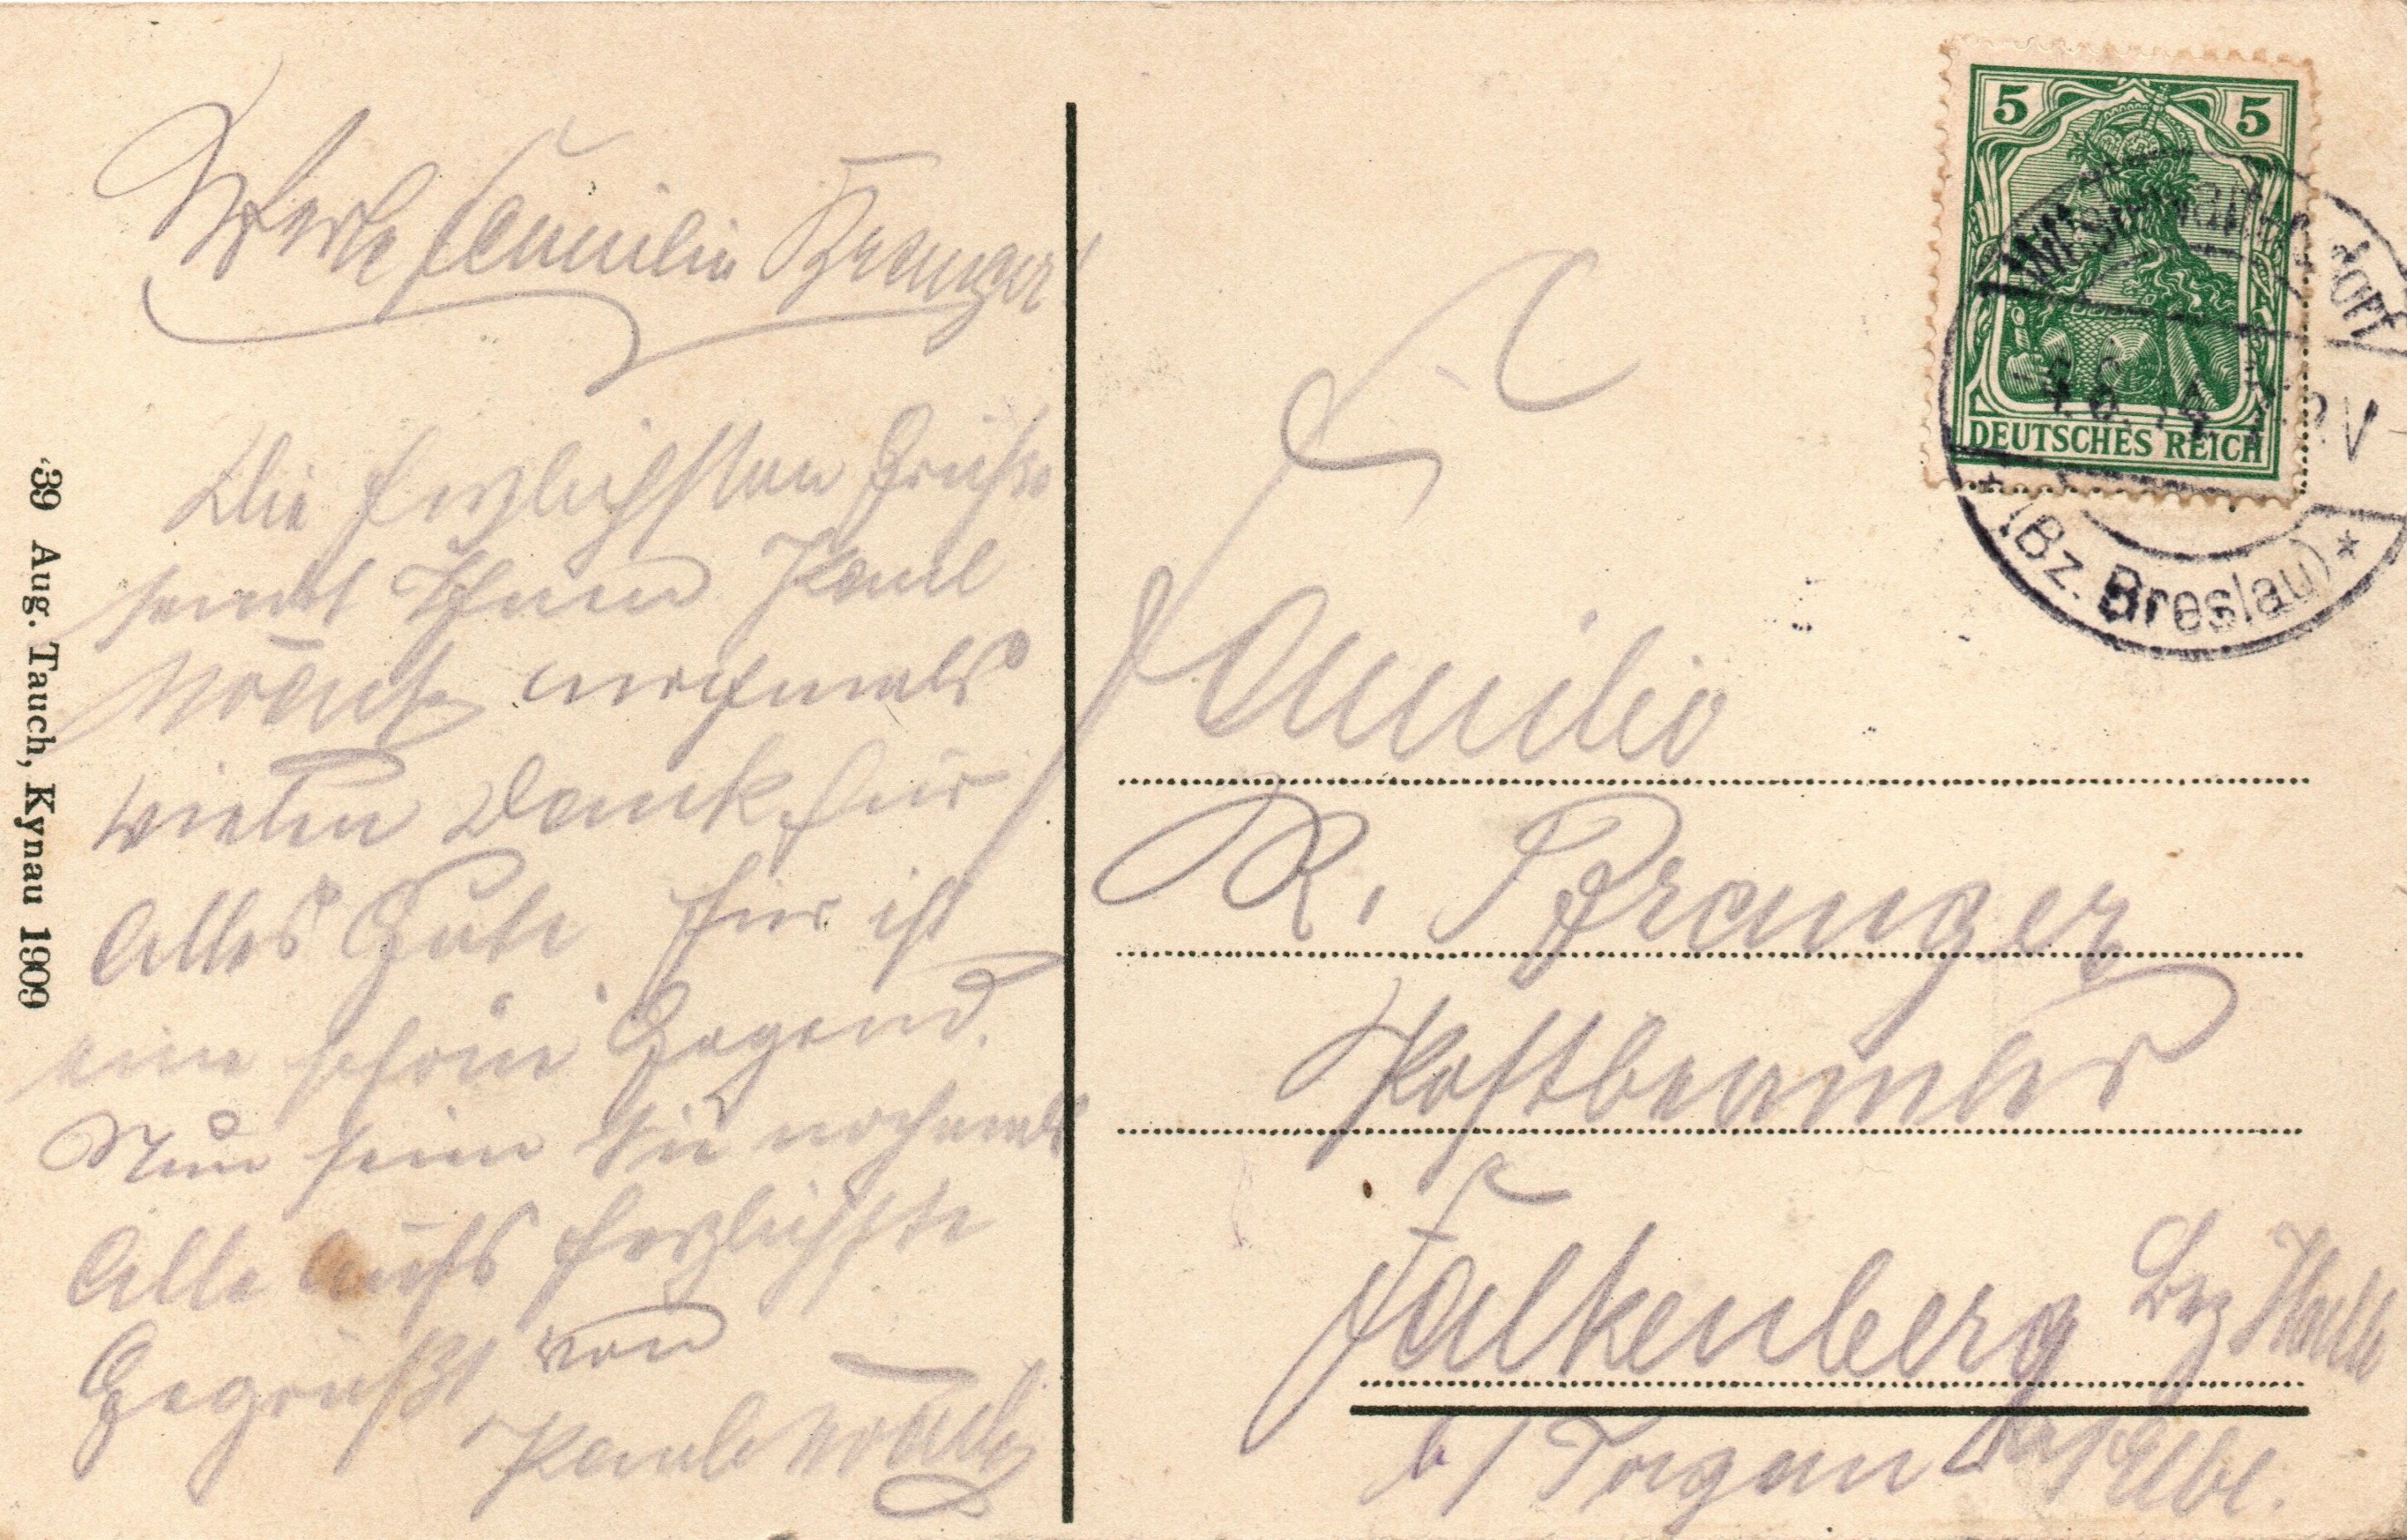 Werte Familie Branger!
Die herzlichsten Grüße
sendet Ihnen Paul
nochmals
vielen Dank für
Alles Gute hier ist
eine schöne Gegend.
Nun seien Sie nochmals
Alle aufs herzlichste
Gegrüßt von
Paul
39 Aug. Tauch, Kynau 1909
5 5
DEUTSCHES REICH
(Bz. Breslau)
Familie
R. Branger
Postbeamter
Falkenberg Bez Halle
b/ Torgau a/Elbe.